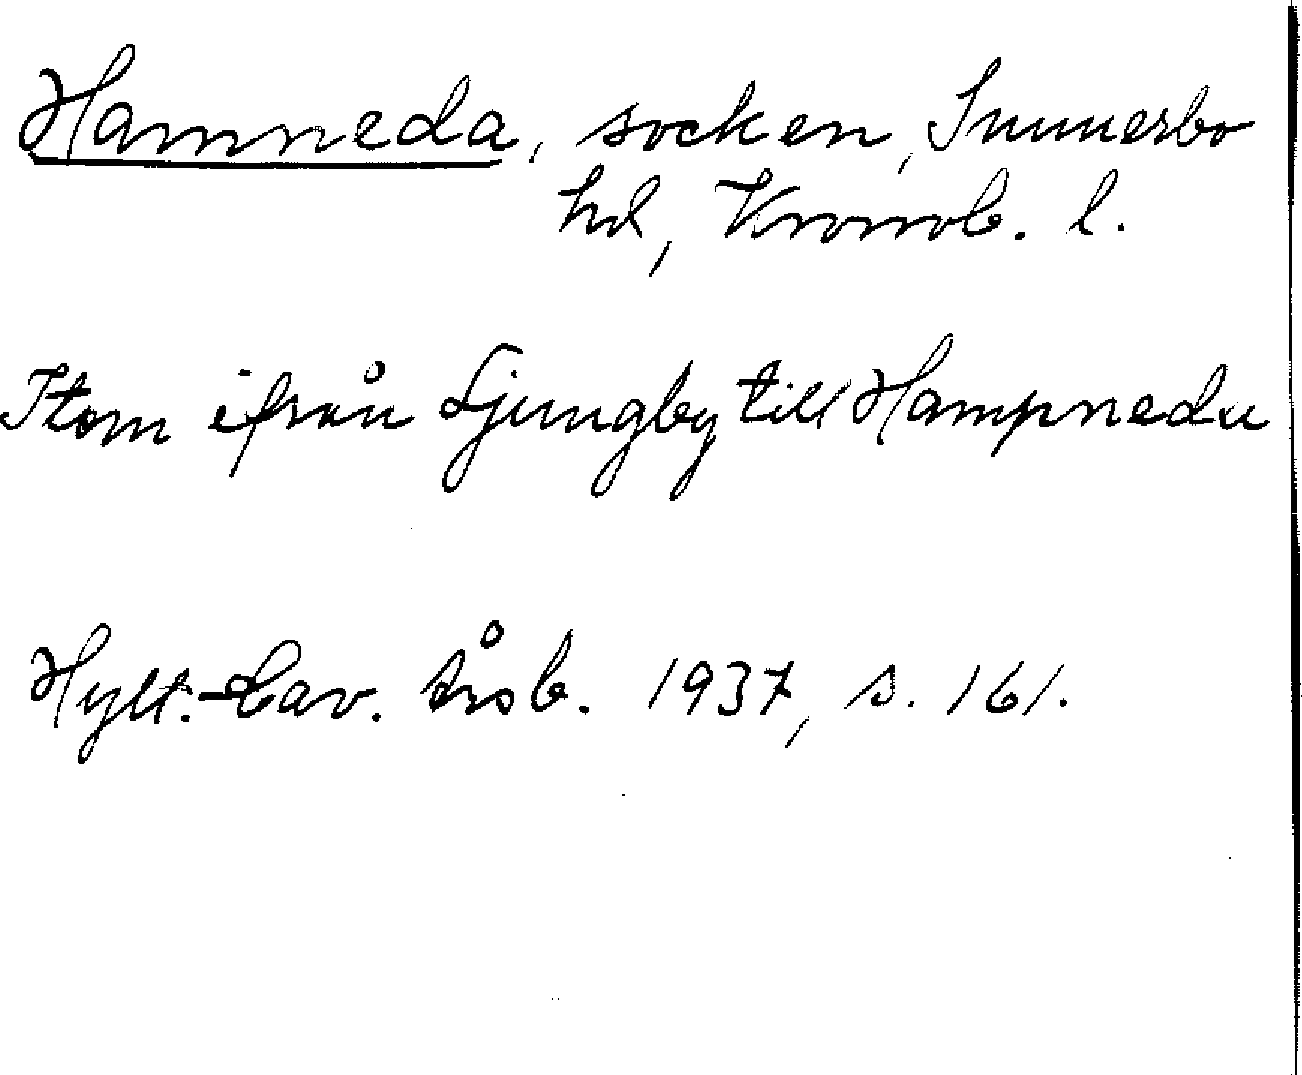 Hamneda, socken, Sunnerbo
hd, Kronob. l.
Item ifrån Ljungby till Hampneda
Hylt.-Cav. årsb. 1937, s. 161.